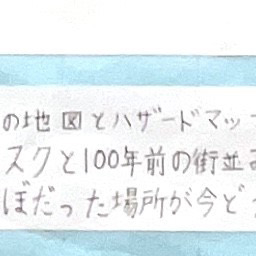 の地図とハザードマッ
スクと100年前の街並
ぼだった場所が今ど